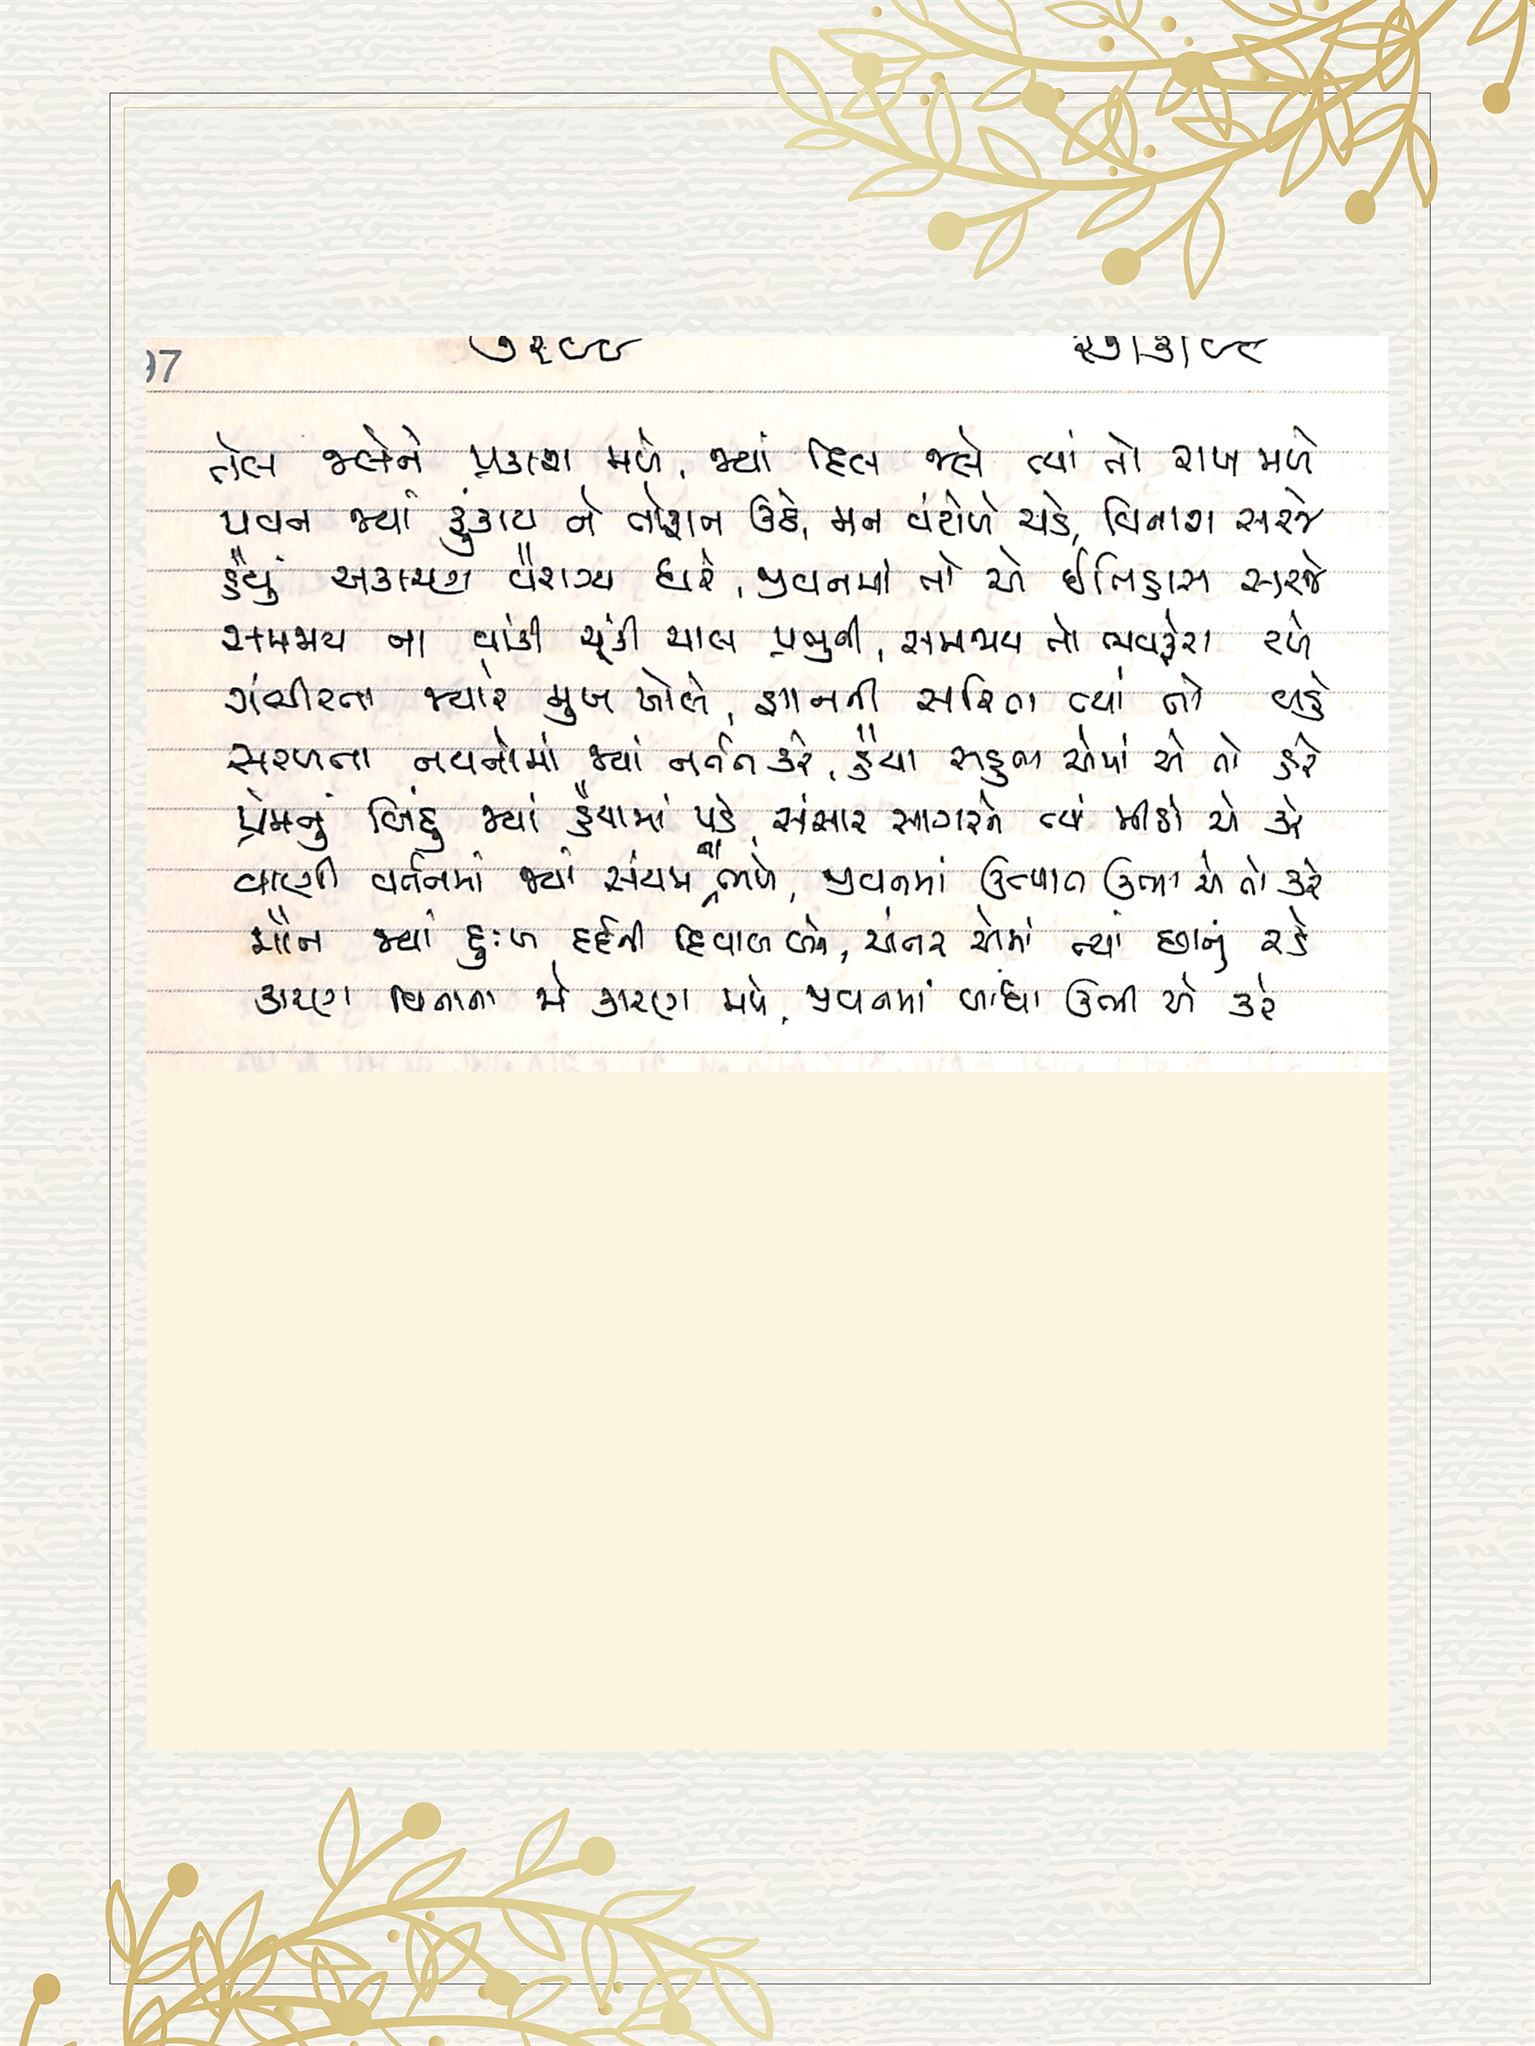 97 ૭૨૮૮ ૨૭/૩/૯૮
તેલ જલેને પ્રકાશ મળે, જ્યાં દિલ જલે ત્યાં તો રાખ મળે
પવન જ્યાં ફુંકાય ને તોફાન ઉઠે, મન વંટોળે ચડે, વિનાશ સરજે
હૈયું અકારણ વૈરાગ્ય ધારે, જીવનમાં તો એ ઈતિહાસ સરજે
સમજાય ના વાંકી ચૂંકી ચાલ પ્રભુની, સમજાય તો ભવફેરા ટળે
ગંભીરતા જ્યારે મુખ ખોલે, જ્ઞાનની સરિતા ત્યાં તો વહે
સરળતા નયનોમાં જ્યાં નર્તન કરે, હૈયા સહુના એમાં એ તો હરે
પ્રેમનું બિંદુ જ્યાં હૈયામાં પડે, સંસાર સાગરને ત્યાં મીઠો એ કરે
વાણી વર્તનમાં જ્યાં સંયમ ના ભળે, જીવનમાં ઉત્પાત ઉભા એ તો કરે
મૌન જ્યાં દુઃખ દર્દની દિવાલ બને, અંતર એમાં ત્યાં છાનું રડે
કારણ વિનાના એ કારણ મળે, જીવનમાં બાધા ઉભી એ કરે